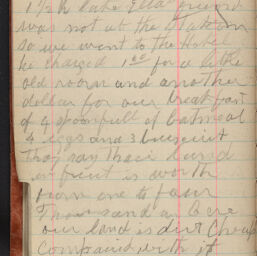 1 1/2 h late Ella's friend
was not at the Station
so we went to the Hotel
he charged 1.00 for a little
old room and another
dollar for our breakfast
of 4 spoonfull of oatmeal
4 eggs and 3 buiscuit
They say their land
in fruit is worth
from one to four
Thousand an Acre
our land is dirt Cheap
Compaired with it